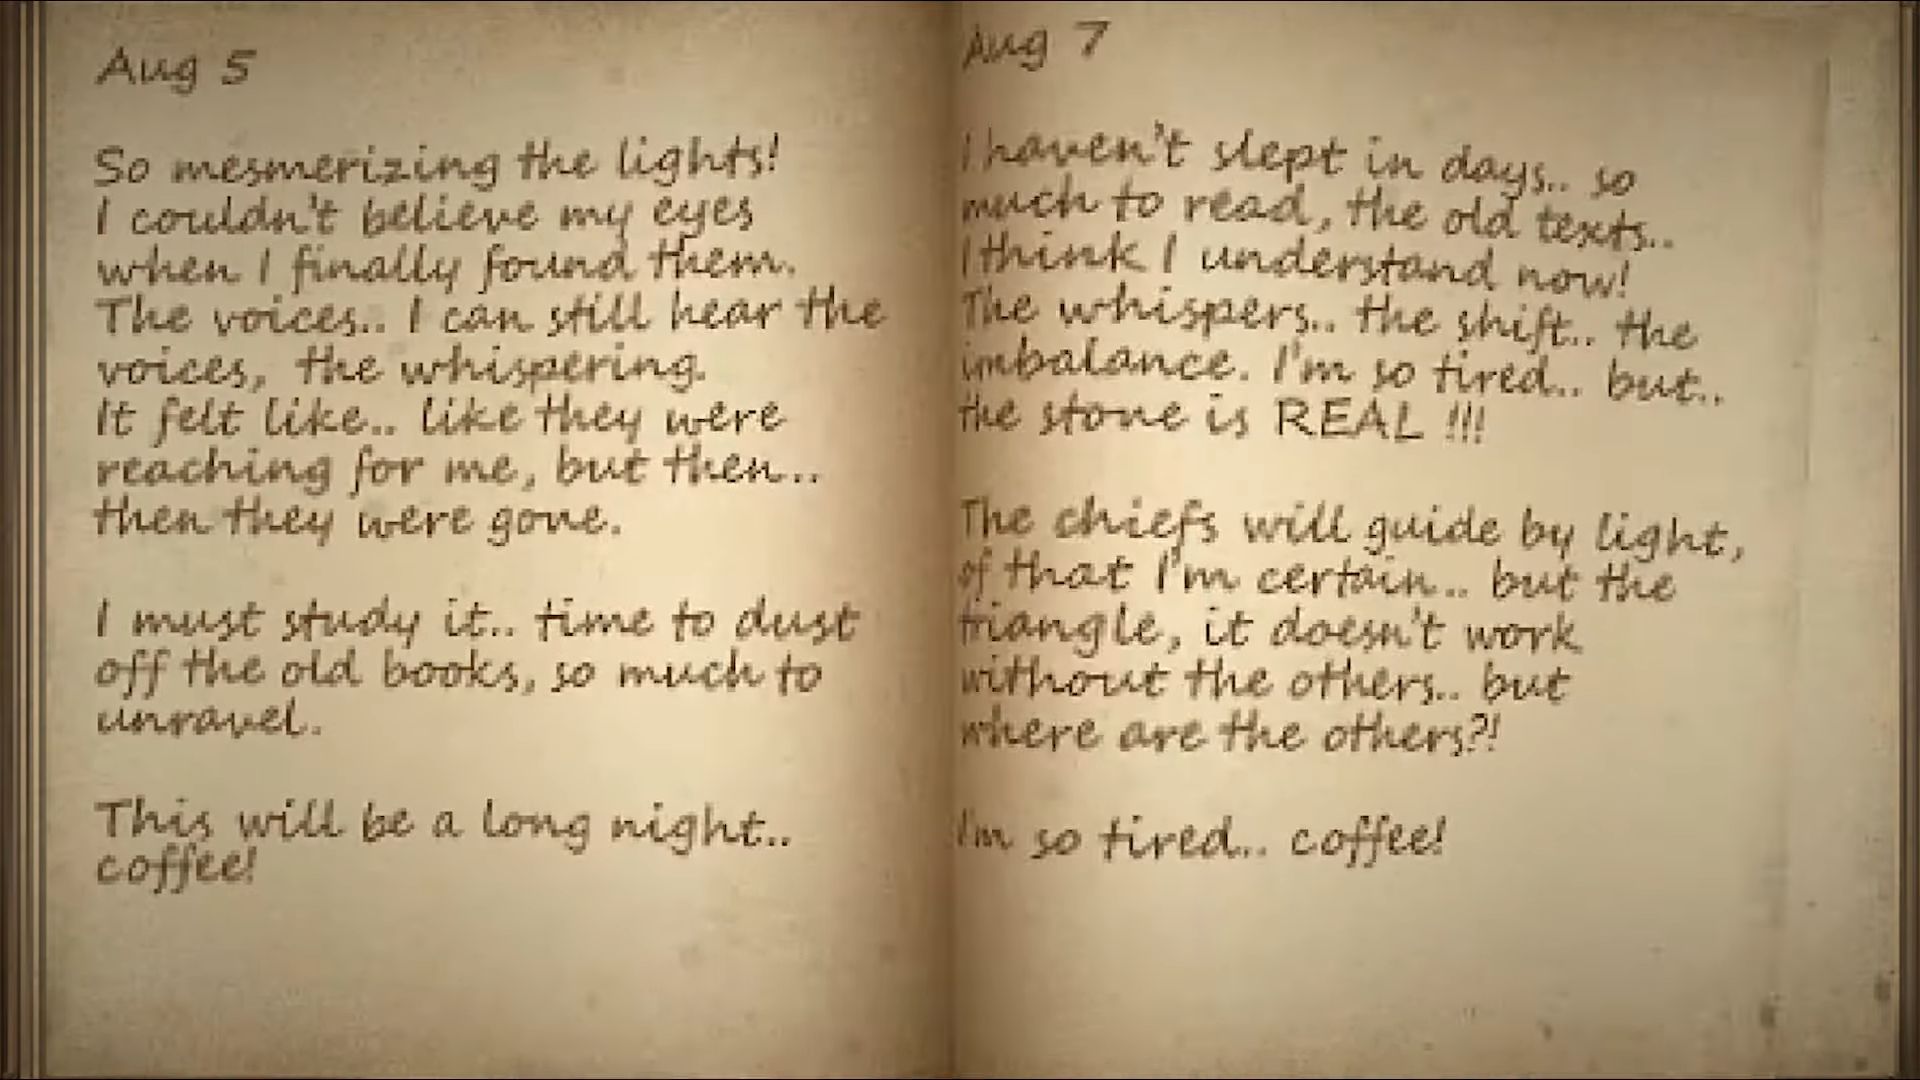 Aug 5
So mesmerizing the lights!
I couldn't believe my eyes
when I finally found them.
The voices.. I can still hear the
voices, the whispering.
It felt like.. like they were
reaching for me, but then..
then they were gone.
I must study it.. time to dust
off the old books, so much to
unravel.
This will be a long night..
coffee!
Aug 7
I haven't slept in days.. so
much to read, the old texts..
I think I understand now!
The whispers.. the shift.. the
imbalance. I'm so tired.. but..
the stone is REAL !!!
The chiefs will guide by light,
of that I'm certain.. but the
triangle, it doesn't work
without the others.. but
where are the others?!
I'm so tired.. coffee!